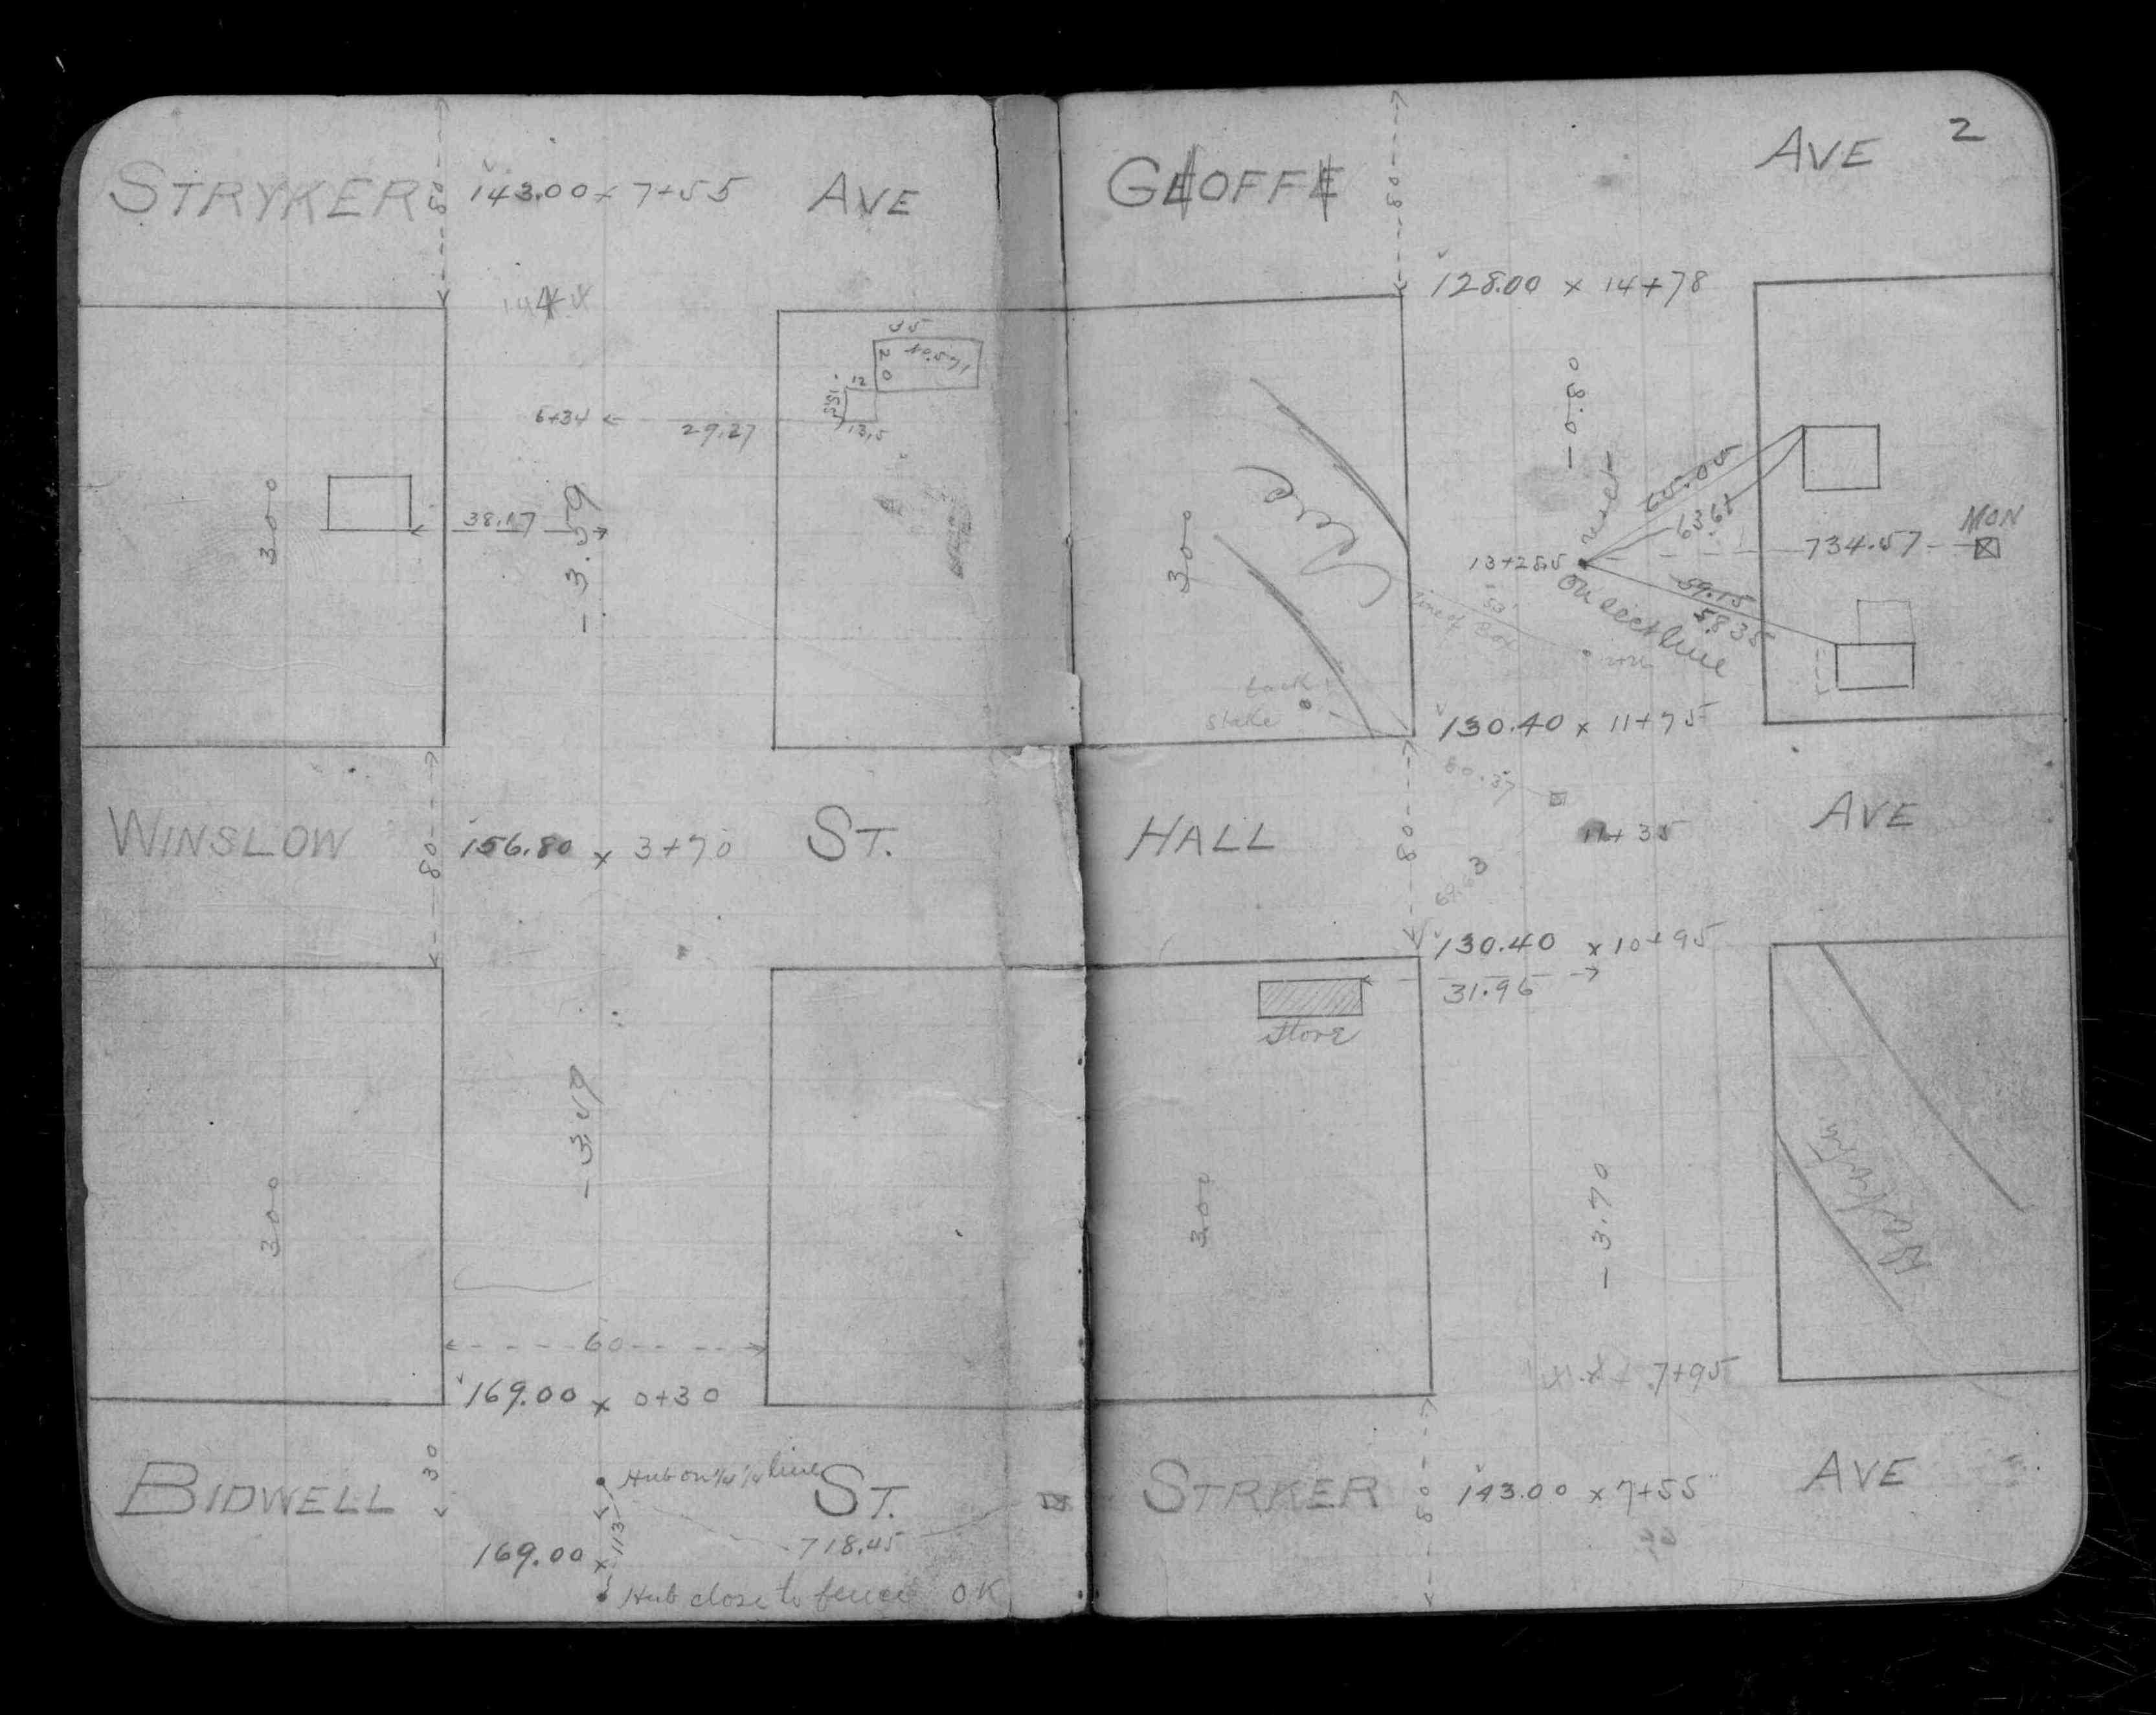 STRYKER 80 143.00 x 7+55 AVE
35
20 40.571
12
13.5
6+34 29.27
300
38.17
- 3.59
WINSLOW 80 156.80 x 3+70 ST.
300
- 3.49
60
169.00 x 0+30
30
Hub on 1/4 1/4 line
BIDWELL ST.
113
718.45
169.00 x
Hub close to fence OK
2
GEOFFE 80 AVE
128.00 x 14+78
- 0.80
300
65.05
63.61
MON
734.57
13+28.5
on sect line
59.15
58 35
line of
53'
tack
stake
130.40 x 11+75
60.37
HALL 80 AVE
11+35
69.63
130.40 x 10+95
31.96
Store
300
- 3.70
7+95
STRKER 80 143.00 x 7+55 AVE